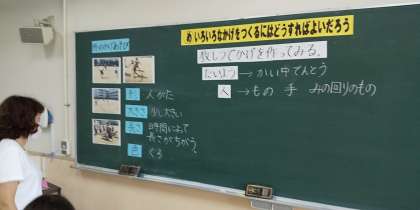 め いろいろなかげをつくるにはどうすればよいだろう
外のかげあそび
教しつでかげを作ってみる。
たいよう → かい中でんとう
人 → もの 手 みの回りのもの
形 人がた
大きさ 少し大きい
長さ 時間によって
長さがちがう
色 くろ